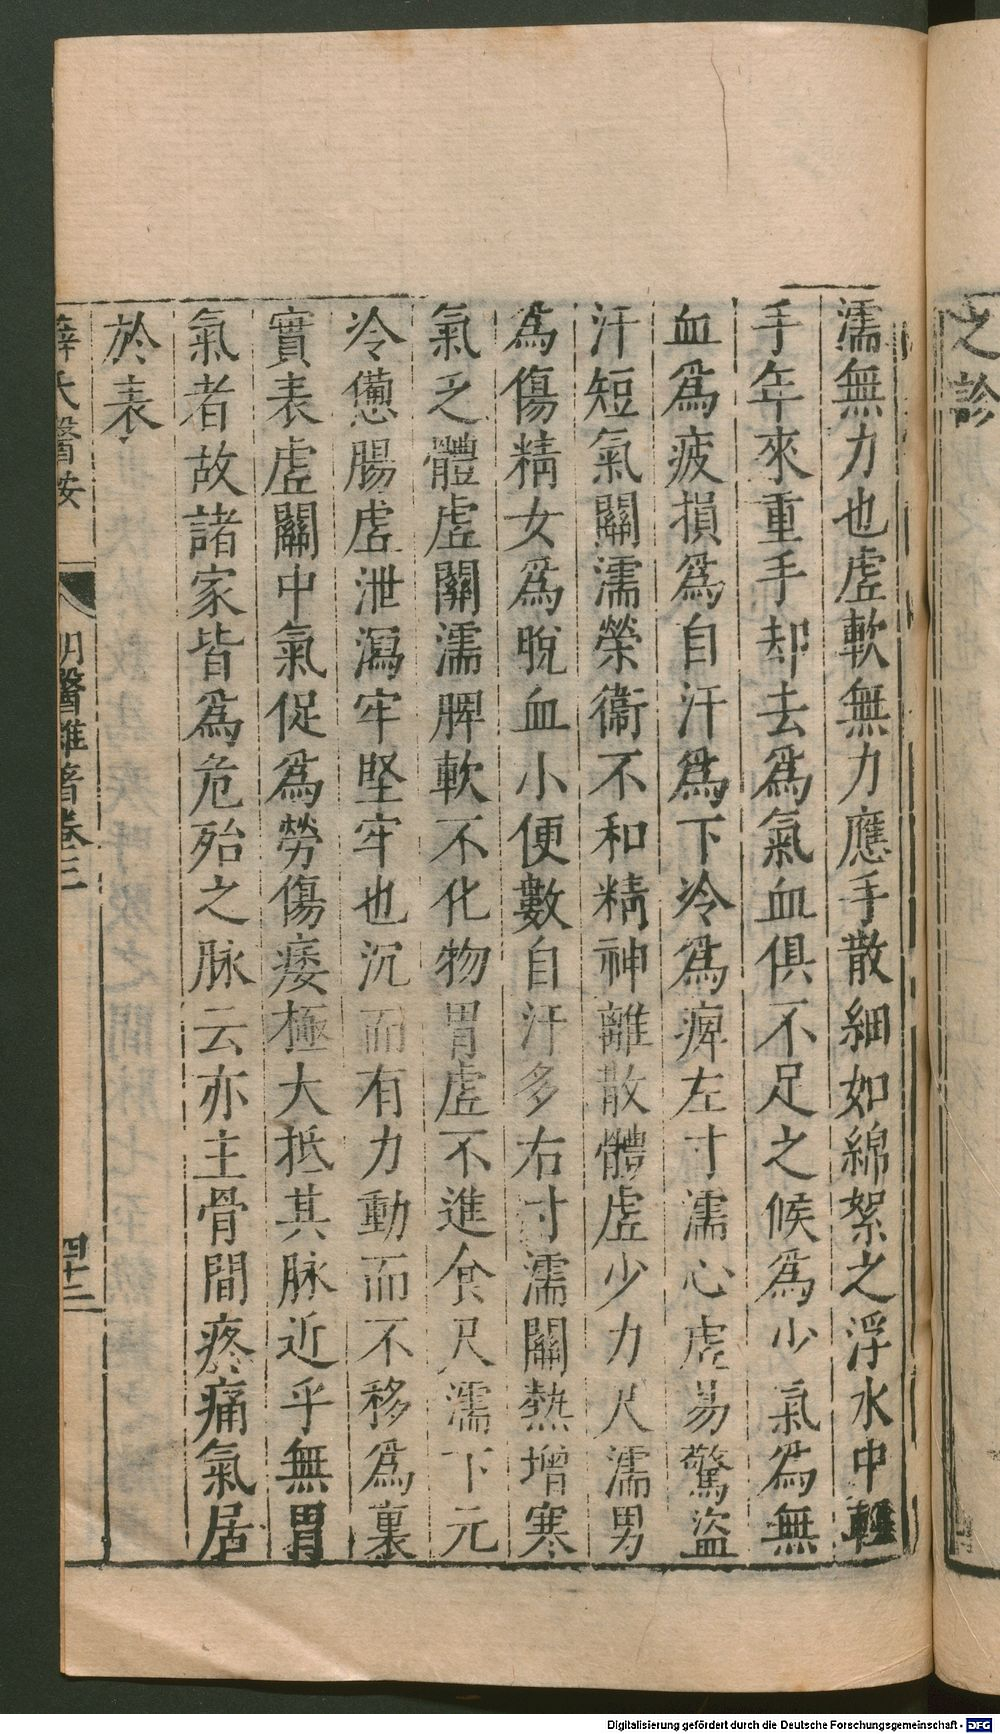 之診
濡無力也虗軟無力應手散細如綿絮之浮水中輕
手年來重手却去為氣血俱不足之候為少氣為無
血為疲損為自汗為下冷為痺左寸濡心虗易驚盜
汗短氣關濡榮衞不和精神離散體虗少力尺濡男
為傷精女為脫血小便數自汗多右寸濡關熱增寒
氣乏體虗關濡脾軟不化物胃虗不進食尺濡下元
冷憊腸虗泄瀉牢堅牢也沉而有力動而不移為裏
實表虗關中氣促為勞傷痿極大抵其脉近乎無胃
氣者故諸家皆為危殆之脉云亦主骨間疼痛氣居
於表
薛氏醫按 明醫雜著卷三 四十三
Digitalisierung gefördert durch die Deutsche Forschungsgemeinschaft - DFG